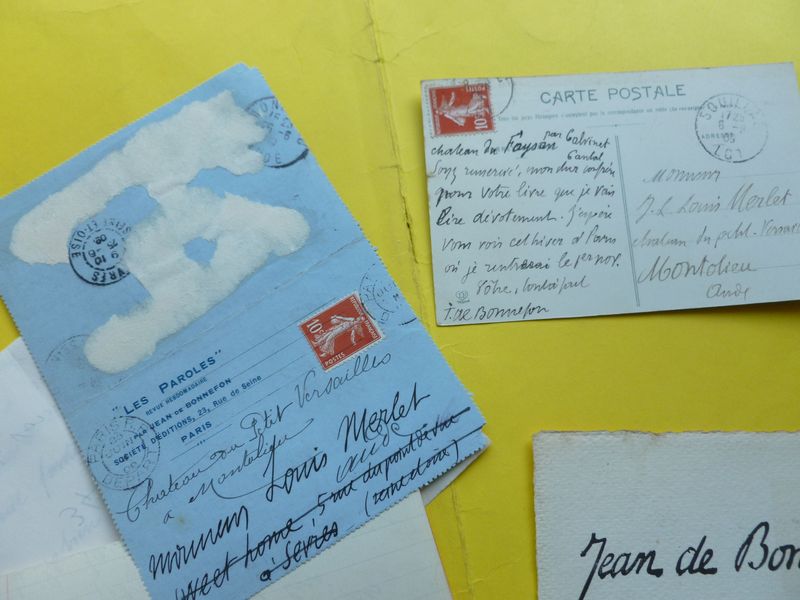 "LES PAROLES"
REVUE HEBDOMADAIRE
PAR JEAN DE BONNEFON
SOCIÉTÉ D'ÉDITIONS, 23, Rue de Seine
PARIS
10c
POSTES
Chateau du Petit Versailles
à Montolieu
Aude
Monsieur Louis Merlet
sweet home, 5 rue du point de vue
à Sèvres (seine & oise)
CARTE POSTALE
10c
SOUILLAC
LOT
chateau du Faysan par Calvinet
Cantal
Soyez remercié, mon cher confrère
pour votre livre que je vais
lire dévotement. J'espère
vous voir cet hiver à Paris
où je rentrerai le 1er nov.
Vôtre, tout à fait
J. de Bonnefon
ADRESSE
Monsieur
J. L. Louis Merlet
chateau du petit-Versailles
Montolieu
Aude
Jean de Bon